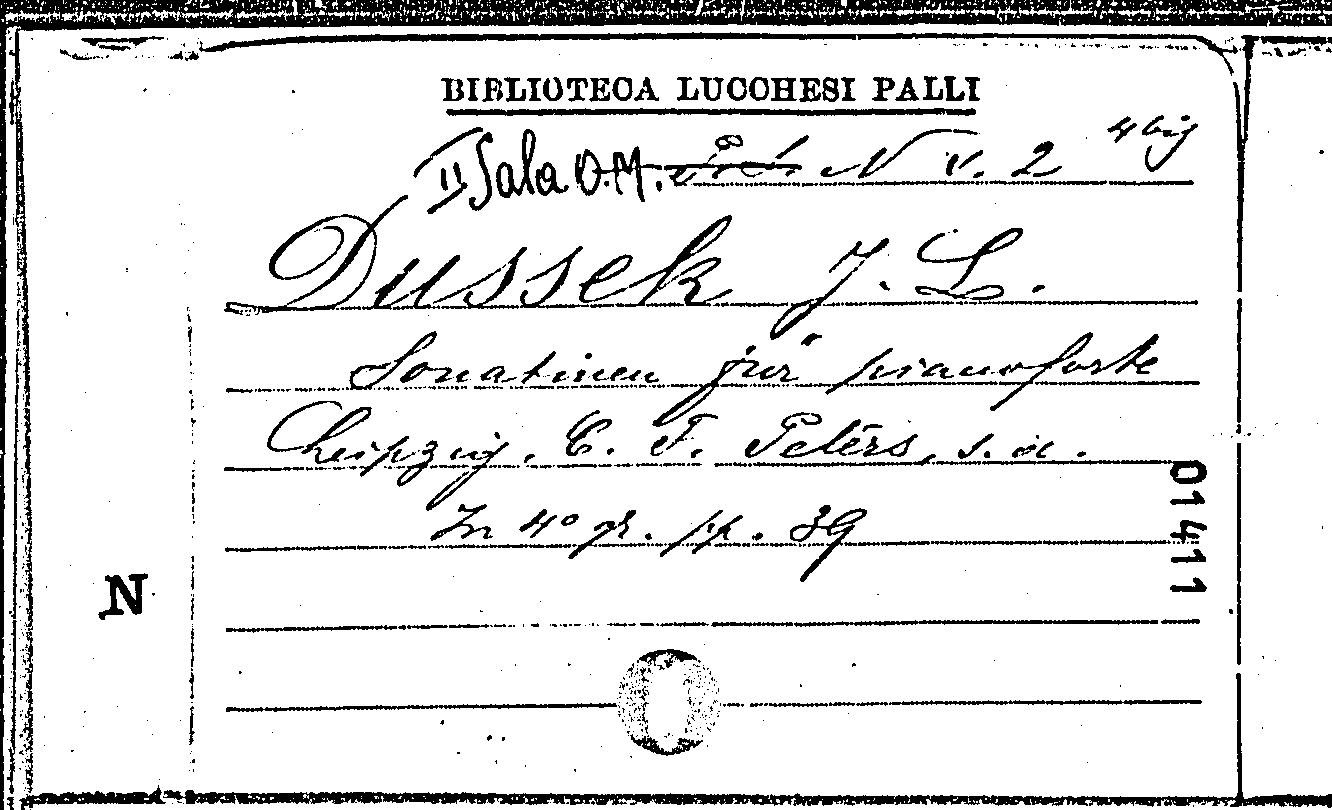 BIBLIOTECA LUCCHESI PALLI
II Sala O.M. N V. 2 4 bis
Dussek J. L.
Sonatinen für pianoforte
Leipzig. C. F. Peters, s. a.
In 4° gr. pp. 39
01411
N